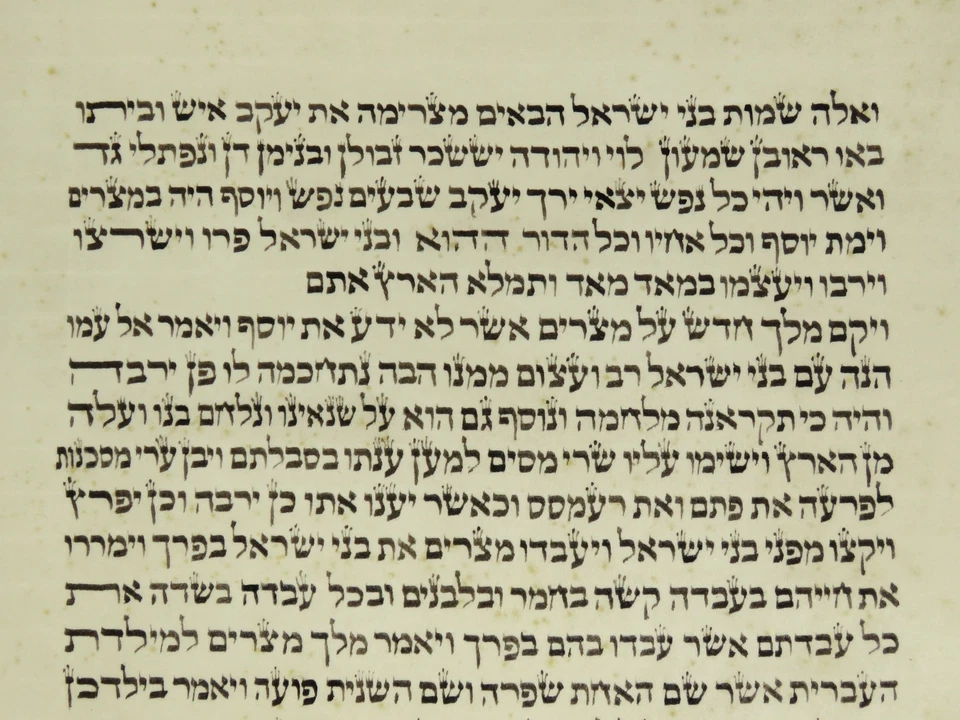 ואלה שמות בני ישראל הבאים מצרימה את יעקב איש וביתו
באו ראובן שמעון לוי ויהודה יששכר זבולן ובנימן דן ונפתלי גד
ואשר ויהי כל נפש יצאי ירך יעקב שבעים נפש ויוסף היה במצרים
וימת יוסף וכל אחיו וכל הדור ההוא ובני ישראל פרו וישרצו
וירבו ויעצמו במאד מאד ותמלא הארץ אתם
ויקם מלך חדש על מצרים אשר לא ידע את יוסף ויאמר אל עמו
הנה עם בני ישראל רב ועצום ממנו הבה נתחכמה לו פן ירבה
והיה כי תקראנה מלחמה ונוסף גם הוא על שנאינו ונלחם בנו ועלה
מן הארץ וישימו עליו שרי מסים למען ענתו בסבלתם ויבן ערי מסכנות
לפרעה את פתם ואת רעמסס וכאשר יענו אתו כן ירבה וכן יפרץ
ויקצו מפני בני ישראל ויעבדו מצרים את בני ישראל בפרך וימררו
את חייהם בעבדה קשה בחמר ובלבנים ובכל עבדה בשדה את
כל עבדתם אשר עבדו בהם בפרך ויאמר מלך מצרים למילדת
העברית אשר שם האחת שפרה ושם השנית פועה ויאמר בילדכן